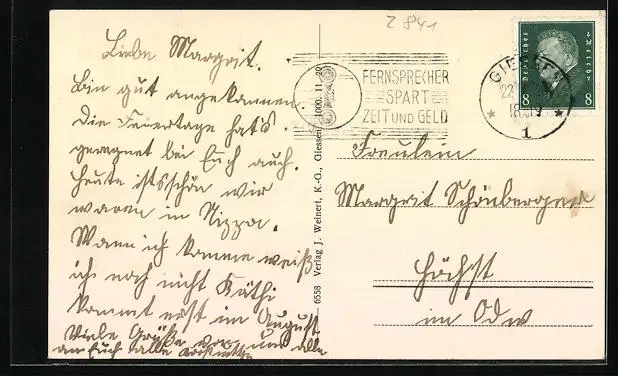 Z 841
Liebe Margrit.
Bin gut angekommen.
Die Feiertage hat's
geregnet bei Euch auch.
Heute ists schön wir
waren in Nizza.
Wann ich komme weiß
ich noch nicht Käthi
kommt erst im August
Viele Grüße von uns alle
an Euch alle
6558 Verlag J. Weinert, K.-G., Giessen 1000. 11. 29
FERNSPRECHER
SPART
ZEIT UND GELD
GIESSEN
22
18-19
1
Deutsches Reich
8 8
Freulein
Margrit Schönberger
Höchst
im Odw